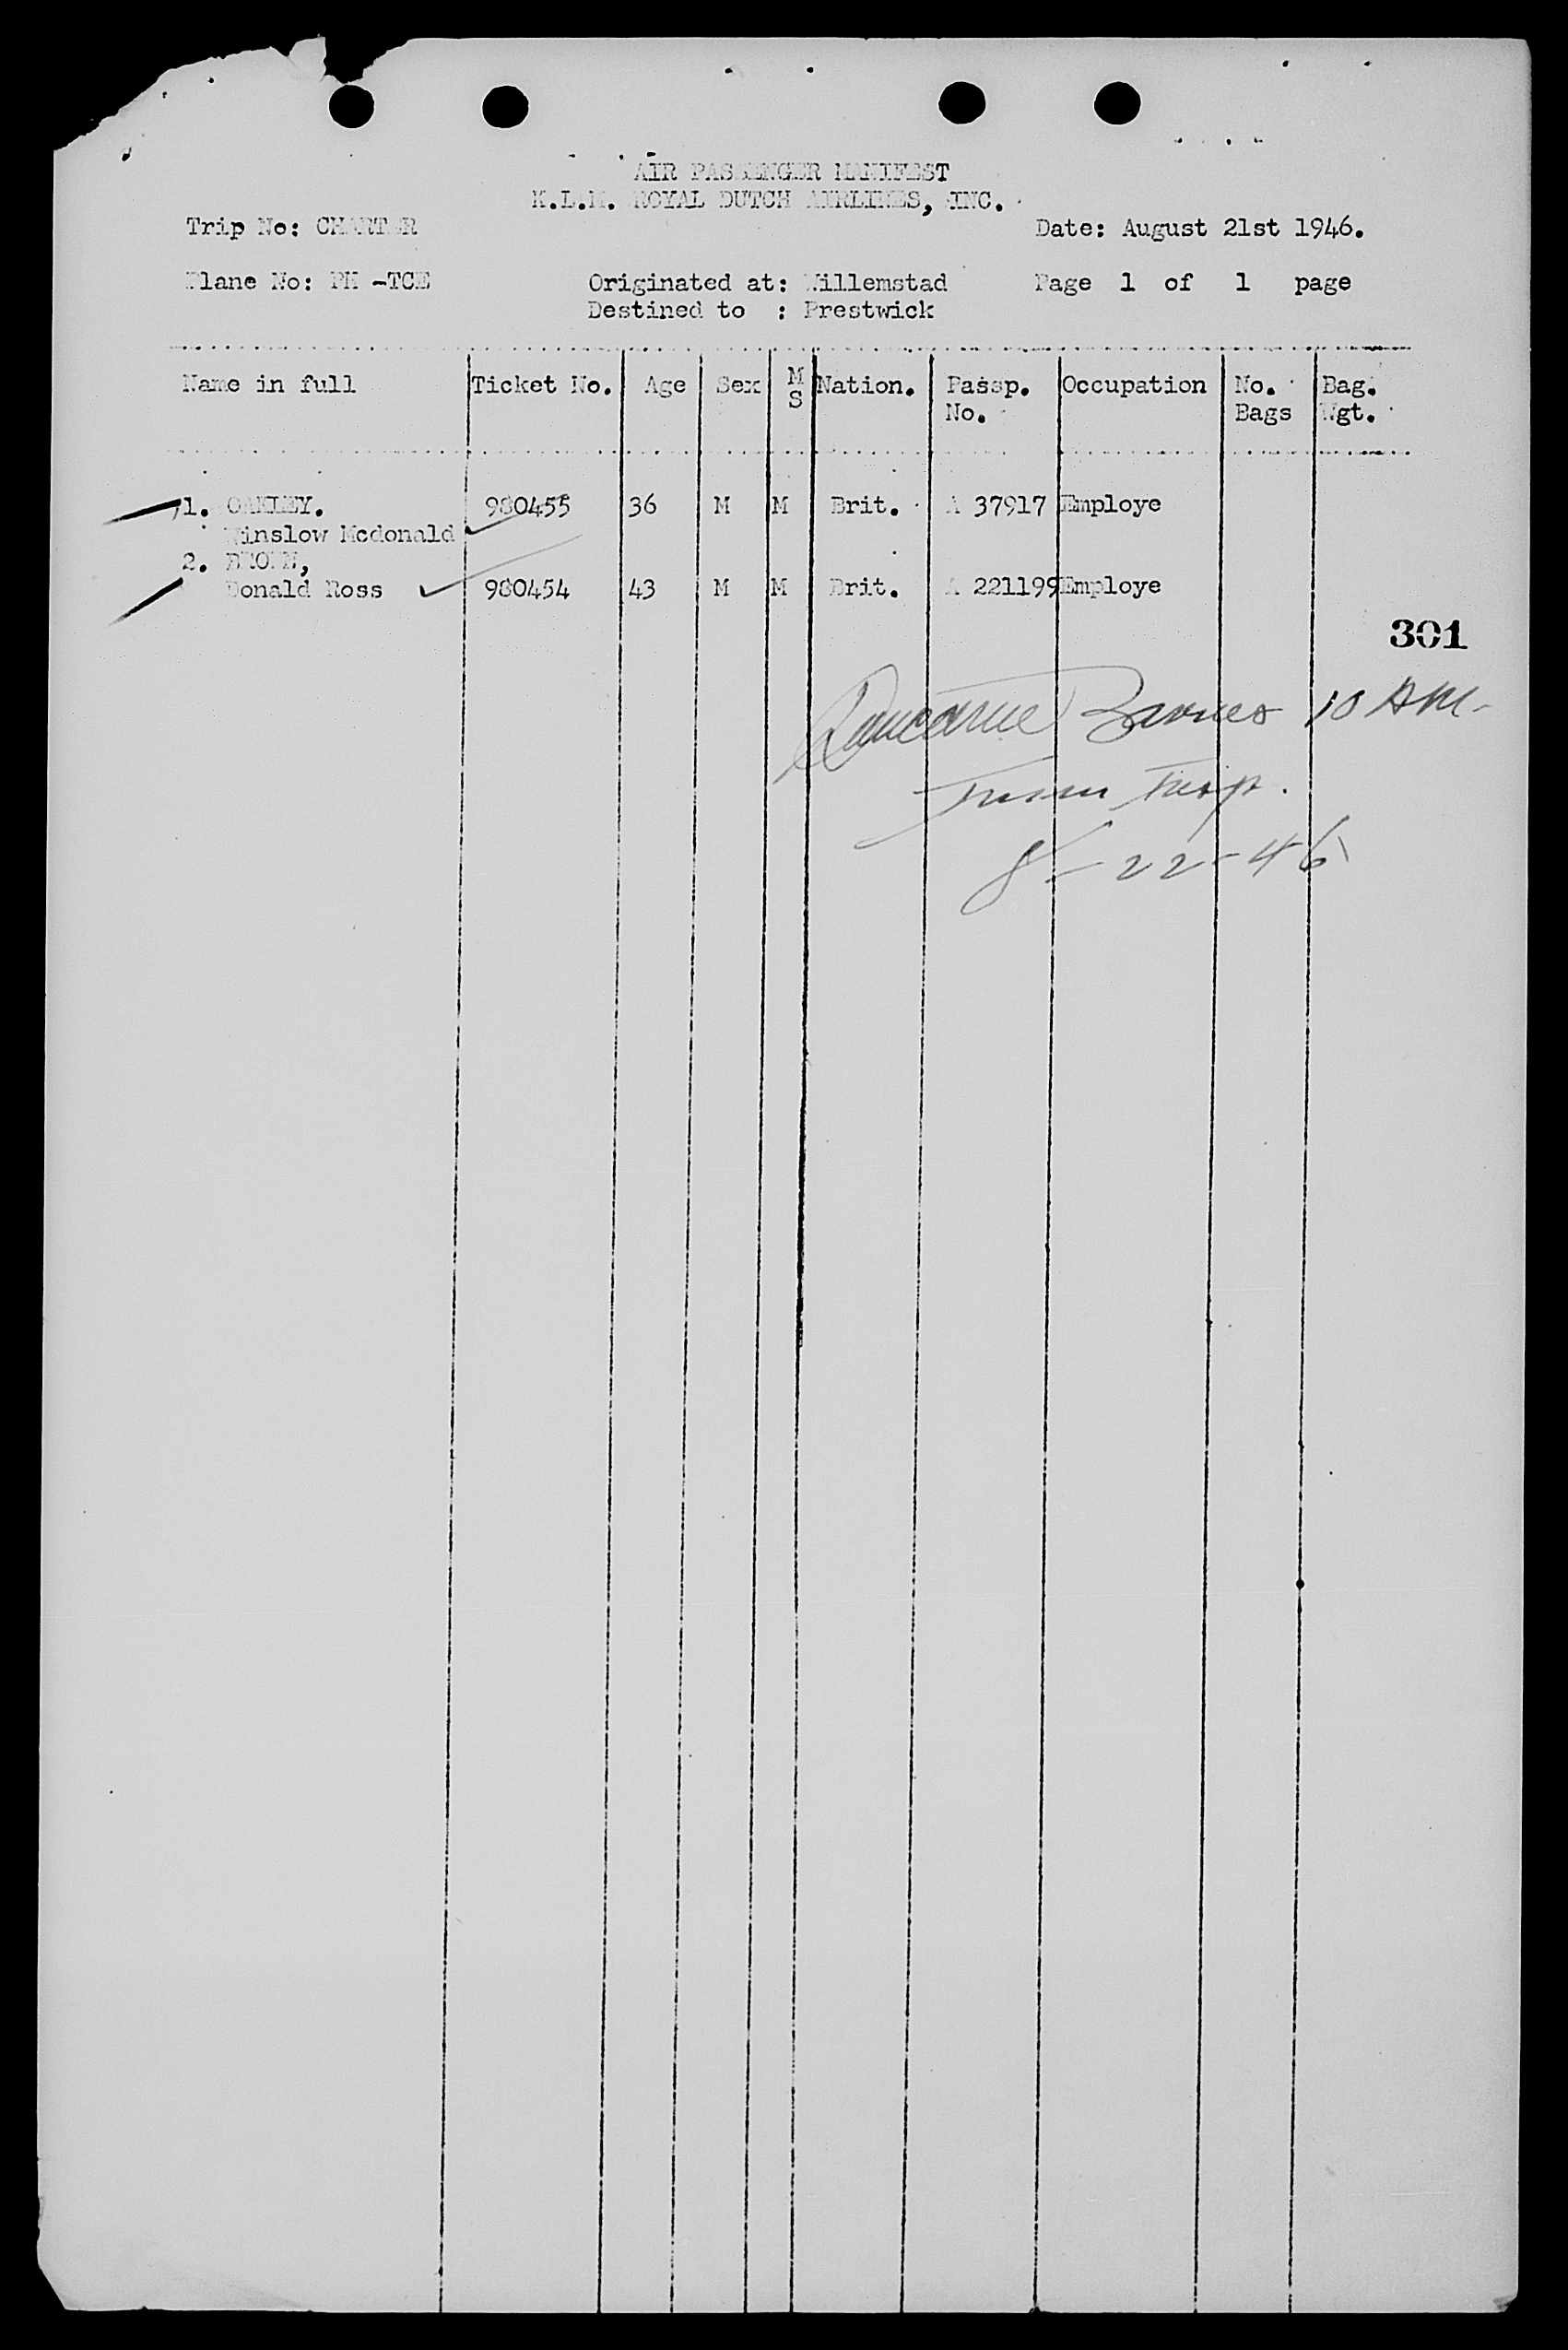 AIR PASSENGER MANIFEST
K.L.M. ROYAL DUTCH AIRLINES, INC.
Trip No: CHARTER Date: August 21st 1946.
Plane No: PH -TCE Originated at: Willemstad Page 1 of 1 page
Destined to : Prestwick
Name in full Ticket No. Age Sex M S Nation. Passp. No. Occupation No. Bags Bag. Wgt.
1. OAKLEY. 980455 36 M M Brit. A 37917 Employe
Winslow Mcdonald
2. BROWN,
Donald Ross 980454 43 M M Brit. A 221199 Employe
301
Barnes 10 AM-
Insp.
8-22-46